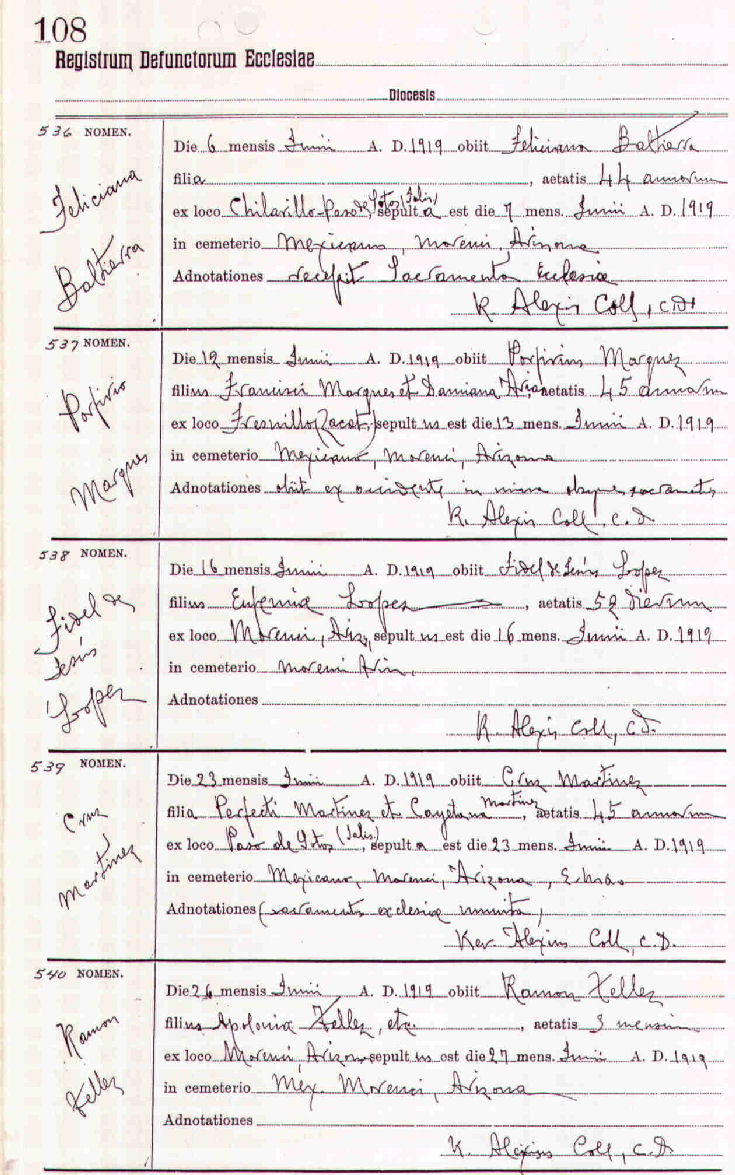 108
Registrum Defunctorum Ecclesiae
Diocesis
536 NOMEN.
Feliciana
Baltierra
Die 6 mensis Junii A. D. 1919 obiit Feliciana Baltierra
filia , aetatis 44 annorum
ex loco Chilarillo-Paso de Sotos (Jalis) sepult a est die 7 mens. Junii A. D. 1919
in cemeterio Mexicano, Morenci, Arizona
Adnotationes recepit Sacramenta Ecclesiae
R. Alexis Coll, C.D.
537 NOMEN.
Porfirio
Marques
Die 12 mensis Junii A. D. 1919 obiit Porfirius Marquez
filius Francisci Marques et Damiana aetatis 45 annorum
ex loco Fresnillo (Zacat.) sepult us est die 13 mens. Junii A. D. 1919
in cemeterio Mexicano, Morenci, Arizona
Adnotationes obiit ex accidente in mina absque sacramentis
R. Alexis Coll, C.D.
538 NOMEN.
Fidel de
Jesús
Loopez
Die 16 mensis Junii A. D. 1919 obiit Fidel de Jesús Loopez
filius Eufemia Loopez , aetatis 52 dierum
ex loco Morenci, Ariz, sepult us est die 16 mens. Junii A. D. 1919
in cemeterio Morenci Ariz.
Adnotationes
R. Alexis Coll, C.D.
539 NOMEN.
Cruz
Martinez
Die 23 mensis Junii A. D. 1919 obiit Cruz Martinez
filia Perfecti Martinez et Cayetana Martinez, aetatis 45 annorum
ex loco Paso de Sotos (Jalis.), sepult a est die 23 mens. Junii A. D. 1919
in cemeterio Mexicano, Morenci, Arizona,
Adnotationes (sacramentis ecclesiae munita)
Rev. Alexius Coll, C.D.
540 NOMEN.
Ramon
Tellez
Die 26 mensis Junii A. D. 1919 obiit Ramon Tellez
filius Apolonia Tellez, etc. , aetatis 3 mensium
ex loco Morenci, Arizona sepult us est die 27 mens. Junii A. D. 1919
in cemeterio Mex. Morenci, Arizona
Adnotationes
R. Alexius Coll, C.D.